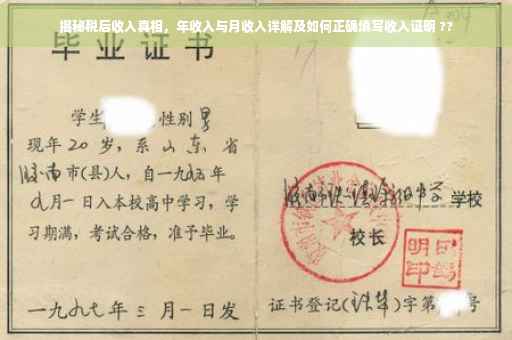 揭秘税后收入真相，年收入与月收入详解及如何正确填写收入证明 ??
毕业证书
学生 性别男
现年20岁，系山东省
济南市(县)人，自一九九五年
九月一日入本校高中学习，学
习期满，考试合格，准予毕业。
一九九七年三月一日发
学校
校长
证书登记( )字第 号